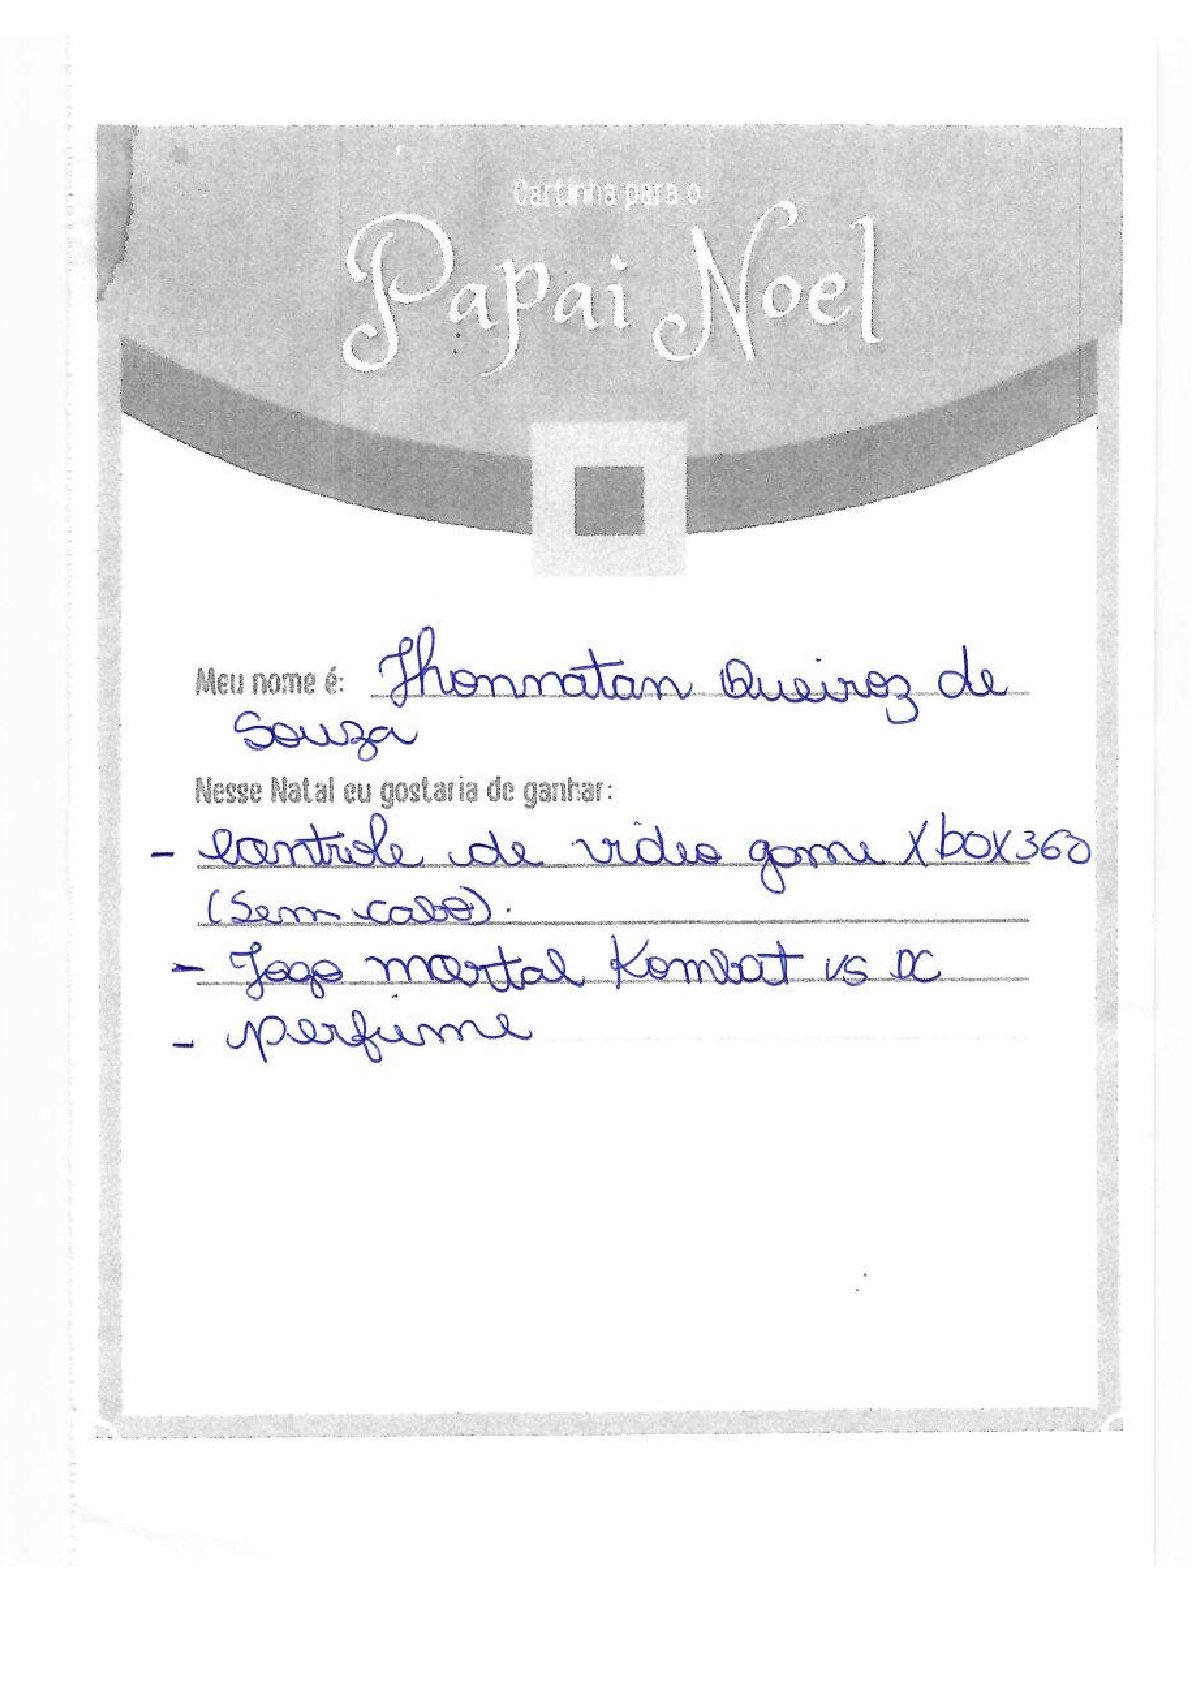 Cartinha para o
Papai Noel
Meu nome é: Jhonnatan Queiroz de
Souza
Nesse Natal eu gostaria de ganhar:
- Controle de video game Xbox360
(Sem cabo).
- Jogo mortal Kombat vs DC
- perfume